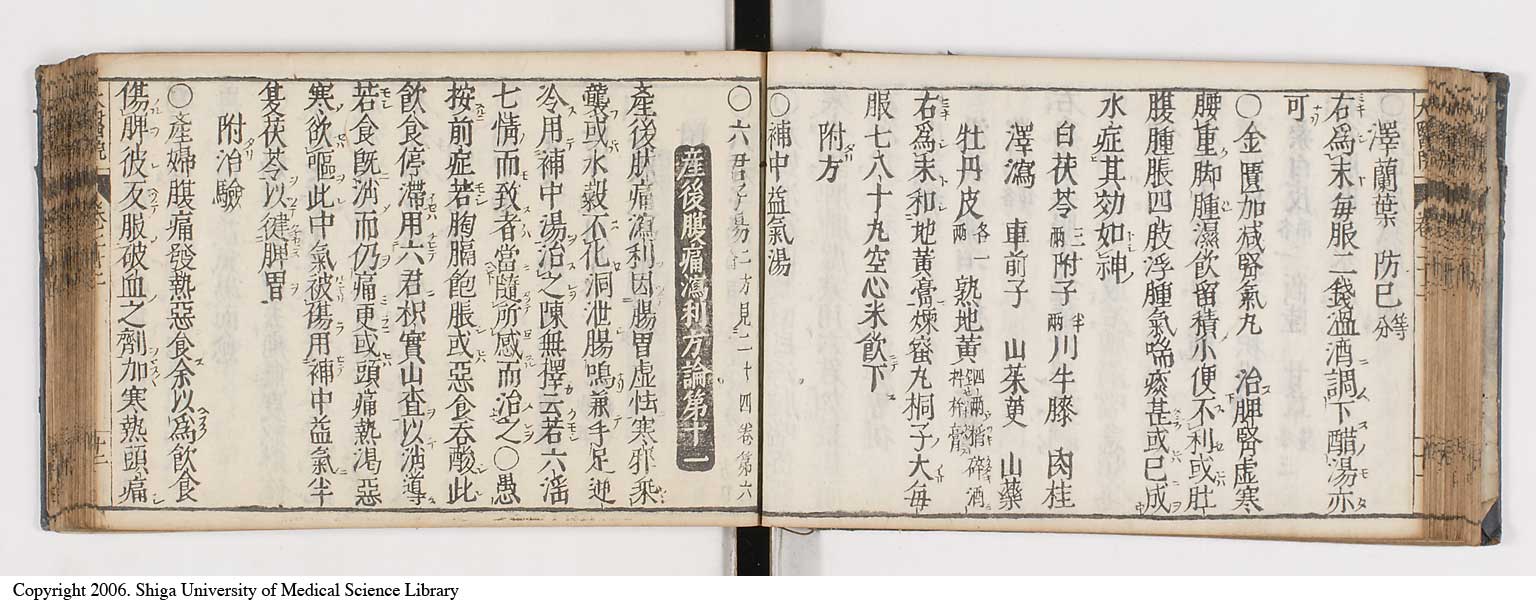 澤蘭葉 防己 等分
右爲末毎服二錢溫酒調下醋湯亦
可
○金匱加减腎氣丸 治脾腎虚寒
腰重脚腫濕飲留積小便不利或肚
腹腫脹四肢浮腫氣喘痰甚或已成
水症其効如神
白茯苓 三兩 附子 半兩 川牛膝 肉桂
澤瀉 車前子 山茱萸 山藥
牡丹皮 各一兩 熟地黄 四兩 搗碎酒 拌杵膏
右爲末和地黄膏煉蜜丸桐子大毎
服七八十丸空心米飲下
附方
○補中益氣湯
○六君子湯 二方見二十四卷第六
産後腹痛瀉利方論第十二
產後肚痛瀉利因腸胃虚怯寒邪乗
襲或水穀不化洞泄腸鳴兼手足逆
冷用補中湯治之陳無擇云若六淫
七情而致者當隨所感而治之○愚
按前症若胸膈飽脹或惡食吞酸此
飲食停滯用六君枳實山査以消導
若食旣消而仍痛更或頭痛熱渴惡
寒欲嘔此中氣被傷用補中益氣半
夏茯苓以健脾胃
附治驗
○產婦腹痛發熱惡食余以爲飲食
傷脾彼反服破血之劑加寒熱頭痛
Copyright 2006. Shiga University of Medical Science Library